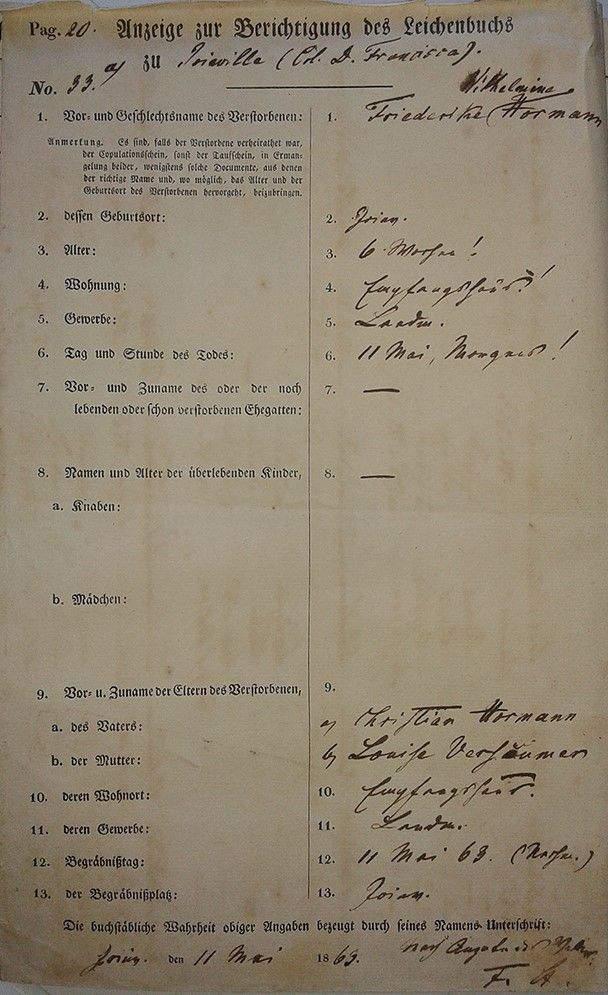 Pag. 20. Anzeige zur Berichtigung des Leichenbuchs
zu Joinville (Col. D. Francisca).
No. 33. a)
1. Vor- und Geschlechtsname des Verstorbenen: 1. Friederike Wilhelmine Hormann
Anmerkung. Es sind, falls der Verstorbene verheirathet war,
der Copulationsschein, sonst der Taufschein, in Erman-
gelung beider, wenigstens solche Documente, aus denen
der richtige Name und, wo möglich, das Alter und der
Geburtsort des Verstorbenen hervorgeht, beizubringen.
2. dessen Geburtsort: 2. Joinv.
3. Alter: 3. 6 Wochen!
4. Wohnung: 4. Empfangshaus!
5. Gewerbe: 5. Landm.
6. Tag und Stunde des Todes: 6. 11 Mai, Morgens!
7. Vor- und Zuname des oder der noch 7. —
lebenden oder schon verstorbenen Ehegatten:
8. Namen und Alter der überlebenden Kinder, 8. —
a. Knaben:
b. Mädchen:
9. Vor- u. Zuname der Eltern des Verstorbenen, 9.
a. des Vaters: a) Christian Hormann
b. der Mutter: b) Louise
10. deren Wohnort: 10. Empfangshaus.
11. deren Gewerbe: 11. Landm.
12. Begräbnißtag: 12. 11 Mai 63.
13. der Begräbnißplatz: 13. Joinv.
Die buchstäbliche Wahrheit obiger Angaben bezeugt durch seines Namens Unterschrift:
Joinv. den 11 Mai 1863. nach Angabe des